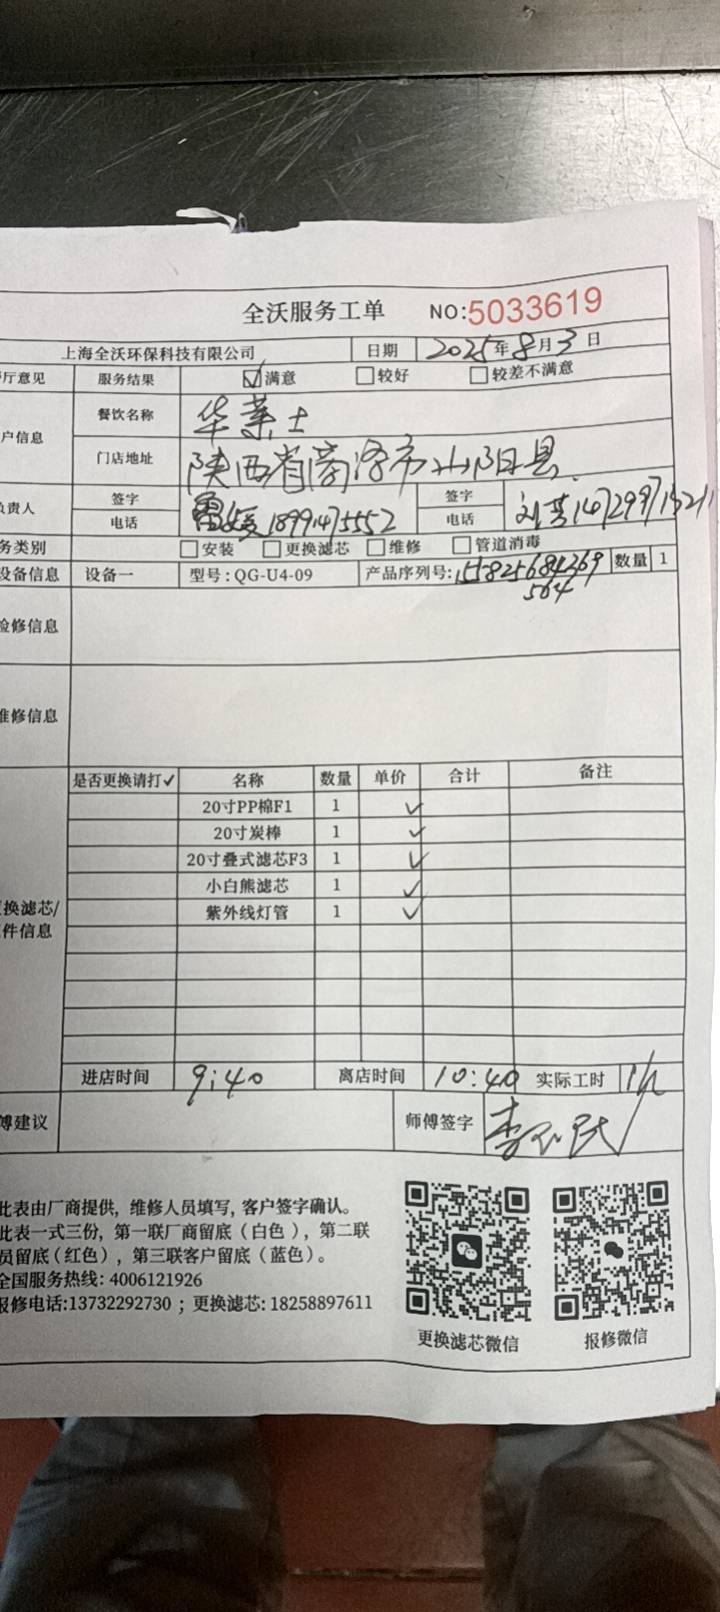 全沃服务工单 NO:5033619
上海全沃环保科技有限公司 日期 2025年8月3日
厅意见 服务结果 ☑满意 □较好 □较差不满意
户信息 餐饮名称 华莱士
门店地址 陕西省商洛市山阳县
负责人 签字 签字
电话 电话
务类别 □安装 □更换滤芯 □维修 □管道消毒
设备信息 设备一 型号:QG-U4-09 产品序列号: 数量 1
检修信息
维修信息
是否更换请打✓ 名称 数量 单价 合计 备注
20寸PP棉F1 1 ✓
20寸炭棒 1 ✓
20寸叠式滤芯F3 1 ✓
小白熊滤芯 1 ✓
紫外线灯管 1 ✓
换滤芯/
件信息
进店时间 9:40 离店时间 10:40 实际工时 1h
傅建议 师傅签字
此表由厂商提供, 维修人员填写, 客户签字确认。
此表一式三份, 第一联厂商留底(白色), 第二联
员留底(红色), 第三联客户留底(蓝色)。
全国服务热线: 4006121926
报修电话:13732292730 ; 更换滤芯: 18258897611
更换滤芯微信 报修微信